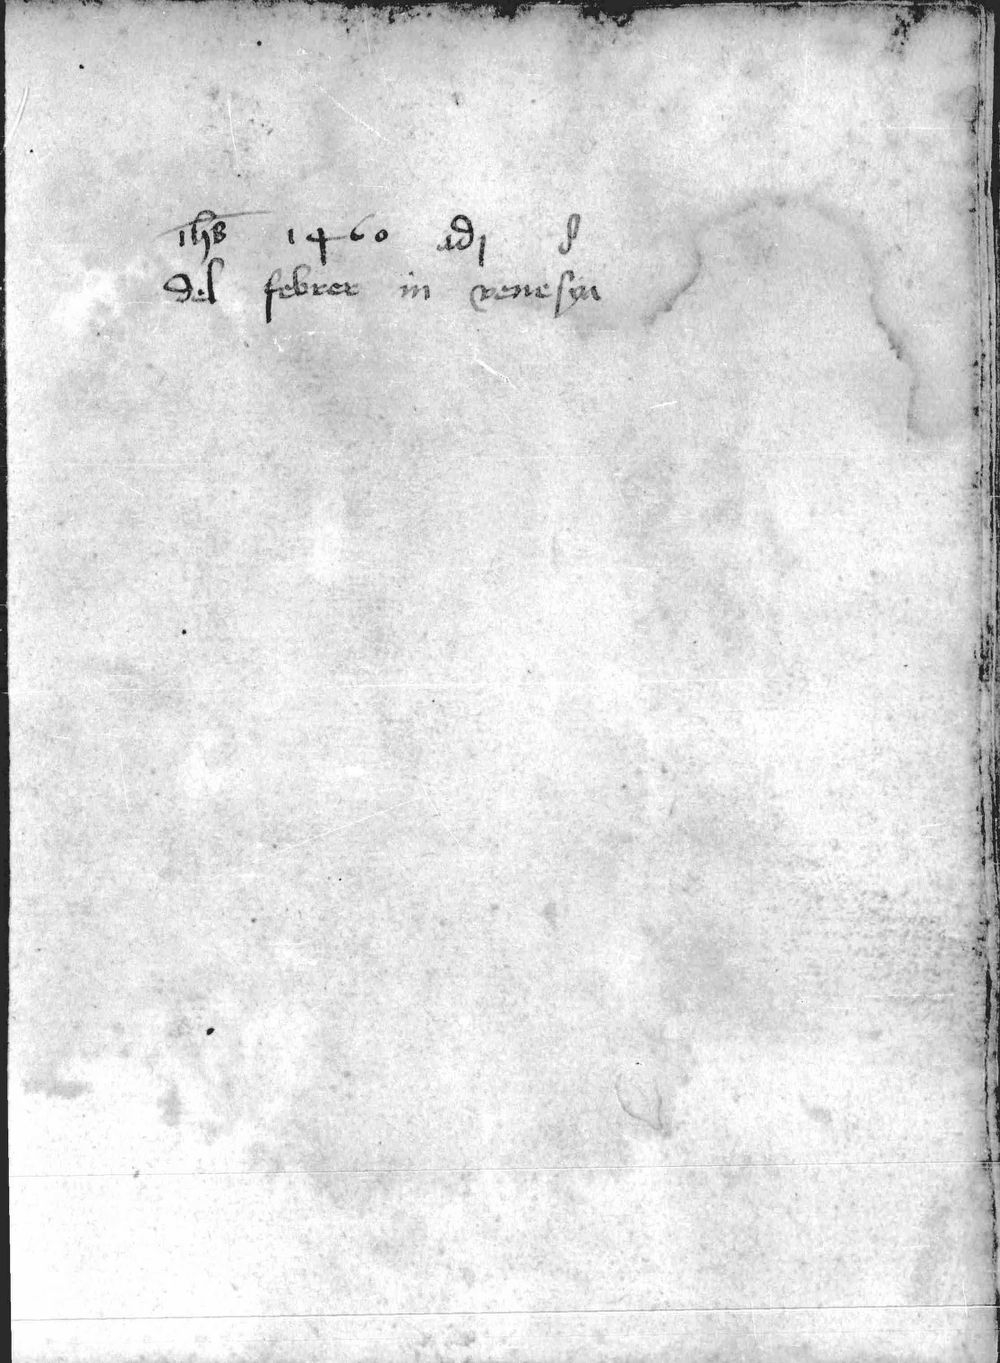 ihs 1460 adj
del febrer in venesya